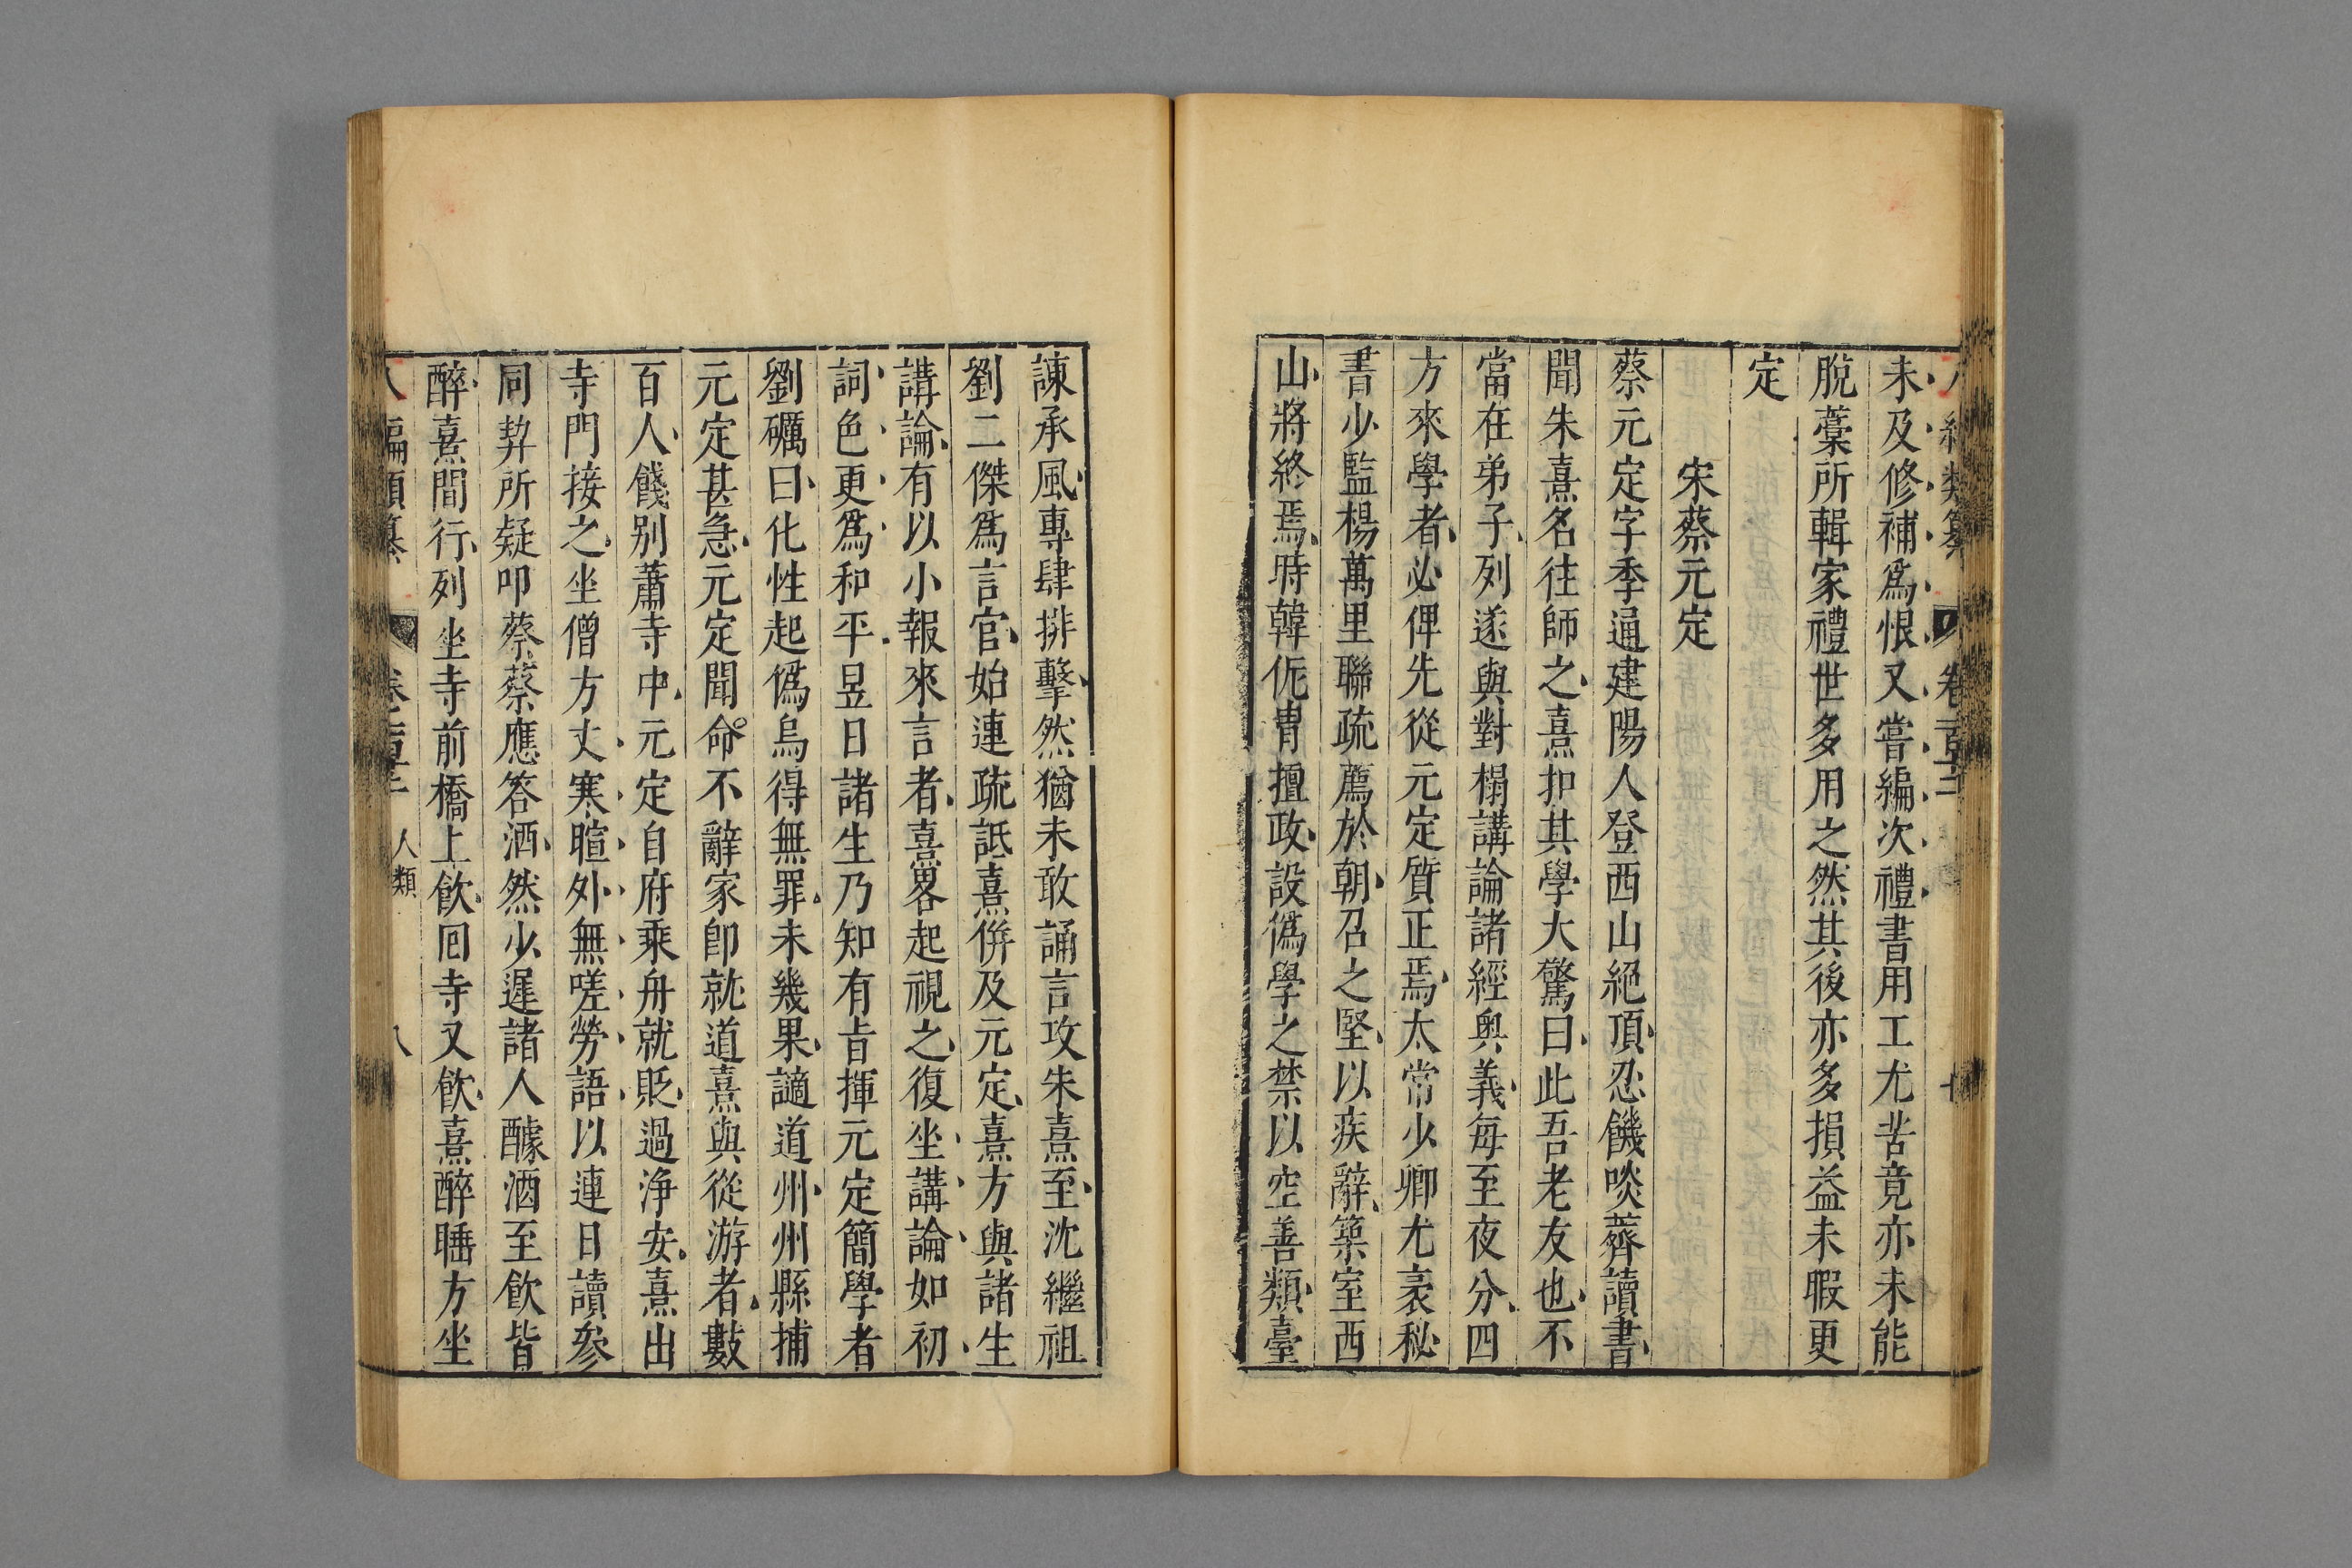 未及修補爲恨又嘗編次禮書用工尤苦竟亦未能
脫藁所輯家禮世多用之然其後亦多損益未暇更
定
宋蔡元定
蔡元定字季通建陽人登西山絕頂忍饑啖薺讀書
聞朱熹名往師之熹扣其學大驚曰此吾老友也不
當在弟子列遂與對榻講論諸經奧義每至夜分四
方來學者必俾先從元定質正焉太常少卿尤袤秘
書少監楊萬里聯疏薦於朝召之堅以疾辭築室西
山將終焉時韓侂冑擅政設僞學之禁以空善類臺
諫承風專肆排擊然猶未敢誦言攻朱熹至沈繼祖
劉二傑爲言官始連疏詆熹併及元定熹方與諸生
講論有以小報來言者熹畧起視之復坐講論如初
詞色更爲和平昱日諸生乃知有旨揮元定簡學者
劉礪曰化性起僞烏得無罪未幾果謫道州州縣捕
元定甚急元定聞命不辭家卽就道熹與從游者數
百人餞别蕭寺中元定自府乘舟就貶過淨安熹出
寺門接之坐僧方丈寒暄外無嗟勞語以連日讀參
同契所疑叩蔡蔡應答洒然少遲諸人醵酒至飮皆
醉熹間行列坐寺前橋上飮囘寺又飮熹醉睡方坐
人類
八